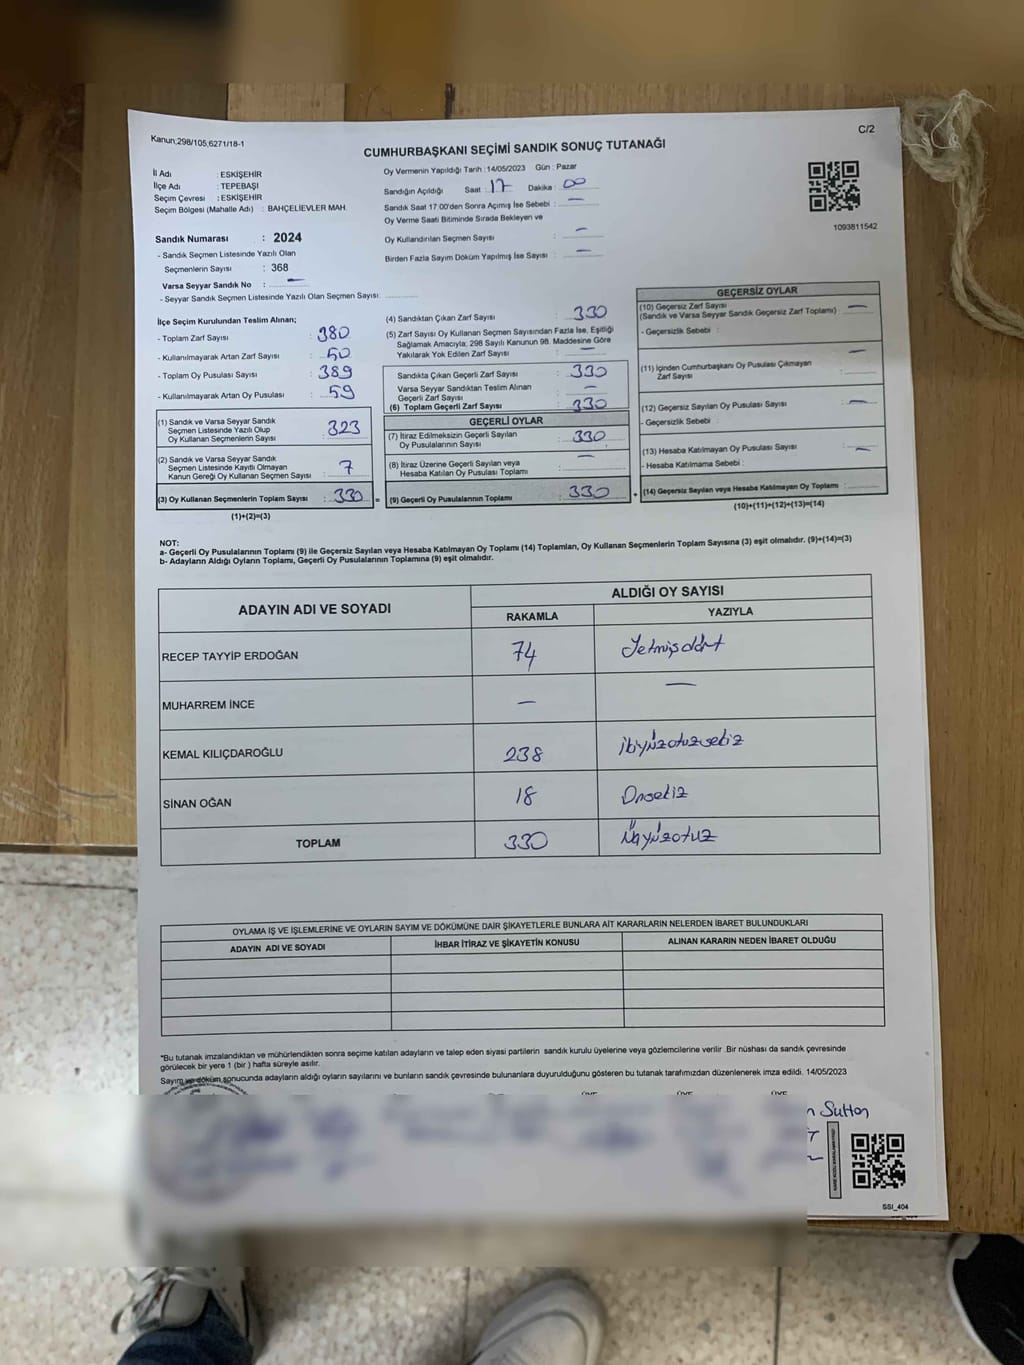 Kanun;298/105,6271/18-1
C/2
CUMHURBAŞKANI SEÇİMİ SANDIK SONUÇ TUTANAĞI
İl Adı : ESKİŞEHİR
İlçe Adı : TEPEBAŞI
Seçim Çevresi : ESKİŞEHİR
Seçim Bölgesi (Mahalle Adı) : BAHÇELİEVLER MAH.
Oy Vermenin Yapıldığı Tarih : 14/05/2023 Gün : Pazar
Sandığın Açıldığı Saat : 17 Dakika : 00
Sandık Saat 17:00'den Sonra Açımış İse Sebebi : —
Oy Verme Saati Bitiminde Sırada Bekleyen ve
Oy Kullandırılan Seçmen Sayısı : —
Birden Fazla Sayım Döküm Yapılmış İse Sayısı : —
1093811542
Sandık Numarası : 2024
- Sandık Seçmen Listesinde Yazılı Olan
Seçmenlerin Sayısı : 368
Varsa Seyyar Sandık No : —
- Seyyar Sandık Seçmen Listesinde Yazılı Olan Seçmen Sayısı:
İlçe Seçim Kurulundan Teslim Alınan;
- Toplam Zarf Sayısı : 380
- Kullanılmayarak Artan Zarf Sayısı : 50
- Toplam Oy Pusulası Sayısı : 389
- Kullanılmayarak Artan Oy Pusulası : 59
(1) Sandık ve Varsa Seyyar Sandık
Seçmen Listesinde Yazılı Olup
Oy Kullanan Seçmenlerin Sayısı : 323
(2) Sandık ve Varsa Seyyar Sandık
Seçmen Listesinde Kayıtlı Olmayan
Kanun Gereği Oy Kullanan Seçmen Sayısı : 7
(3) Oy Kullanan Seçmenlerin Toplam Sayısı : 330 =
(1)+(2)=(3)
(4) Sandıktan Çıkan Zarf Sayısı : 330
(5) Zarf Sayısı Oy Kullanan Seçmen Sayısından Fazla İse, Eşitliği
Sağlamak Amacıyla; 298 Sayılı Kanunun 98. Maddesine Göre
Yakılarak Yok Edilen Zarf Sayısı : —
Sandıkta Çıkan Geçerli Zarf Sayısı : 330
Varsa Seyyar Sandıktan Teslim Alınan
Geçerli Zarf Sayısı : —
(6) Toplam Geçerli Zarf Sayısı : 330
GEÇERLİ OYLAR
(7) İtiraz Edilmeksizin Geçerli Sayılan
Oy Pusulalarının Sayısı : 330
(8) İtiraz Üzerine Geçerli Sayılan veya
Hesaba Katılan Oy Pusulası Toplamı : —
(9) Geçerli Oy Pusulalarının Toplamı : 330 +
GEÇERSİZ OYLAR
(10) Geçersiz Zarf Sayısı : —
(Sandık ve Varsa Seyyar Sandık Geçersiz Zarf Toplamı)
- Geçersizlik Sebebi :
(11) İçinden Cumhurbaşkanı Oy Pusulası Çıkmayan
Zarf Sayısı : —
(12) Geçersiz Sayılan Oy Pusulası Sayısı : —
- Geçersizlik Sebebi :
(13) Hesaba Katılmayan Oy Pusulası Sayısı : —
- Hesaba Katılmama Sebebi :
(14) Geçersiz Sayılan veya Hesaba Katılmayan Oy Toplamı :
(10)+(11)+(12)+(13)=(14)
NOT:
a- Geçerli Oy Pusulalarının Toplamı (9) ile Geçersiz Sayılan veya Hesaba Katılmayan Oy Toplamı (14) Toplamları, Oy Kullanan Seçmenlerin Toplam Sayısına (3) eşit olmalıdır. (9)+(14)=(3)
b- Adayların Aldığı Oyların Toplamı, Geçerli Oy Pusulalarının Toplamına (9) eşit olmalıdır.
ADAYIN ADI VE SOYADI ALDIĞI OY SAYISI
RAKAMLA YAZIYLA
RECEP TAYYİP ERDOĞAN 74 Yetmişdört
MUHARREM İNCE — —
KEMAL KILIÇDAROĞLU 238 ikiyüzotuzsekiz
SİNAN OĞAN 18 Onsekiz
TOPLAM 330 Üçyüzotuz
OYLAMA İŞ VE İŞLEMLERİNE VE OYLARIN SAYIM VE DÖKÜMÜNE DAİR ŞİKAYETLERLE BUNLARA AİT KARARLARIN NELERDEN İBARET BULUNDUKLARI
ADAYIN ADI VE SOYADI İHBAR İTİRAZ VE ŞİKAYETİN KONUSU ALINAN KARARIN NEDEN İBARET OLDUĞU
*Bu tutanak imzalandıktan ve mühürlendikten sonra seçime katılan adayların ve talep eden siyasi partilerin sandık kurulu üyelerine veya gözlemcilerine verilir .Bir nüshası da sandık çevresinde
görülecek bir yere 1 (bir ) hafta süreyle asılır.
Sayım ve döküm sonucunda adayların aldığı oyların sayılarını ve bunların sandık çevresinde bulunanlara duyurulduğunu gösteren bu tutanak tarafımızdan düzenlenerek imza edildi. 14/05/2023
ÜYE ÜYE ÜYE
SSI_404